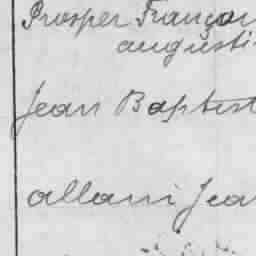 Prosper François
augusti
Jean Baptist
allani Jea